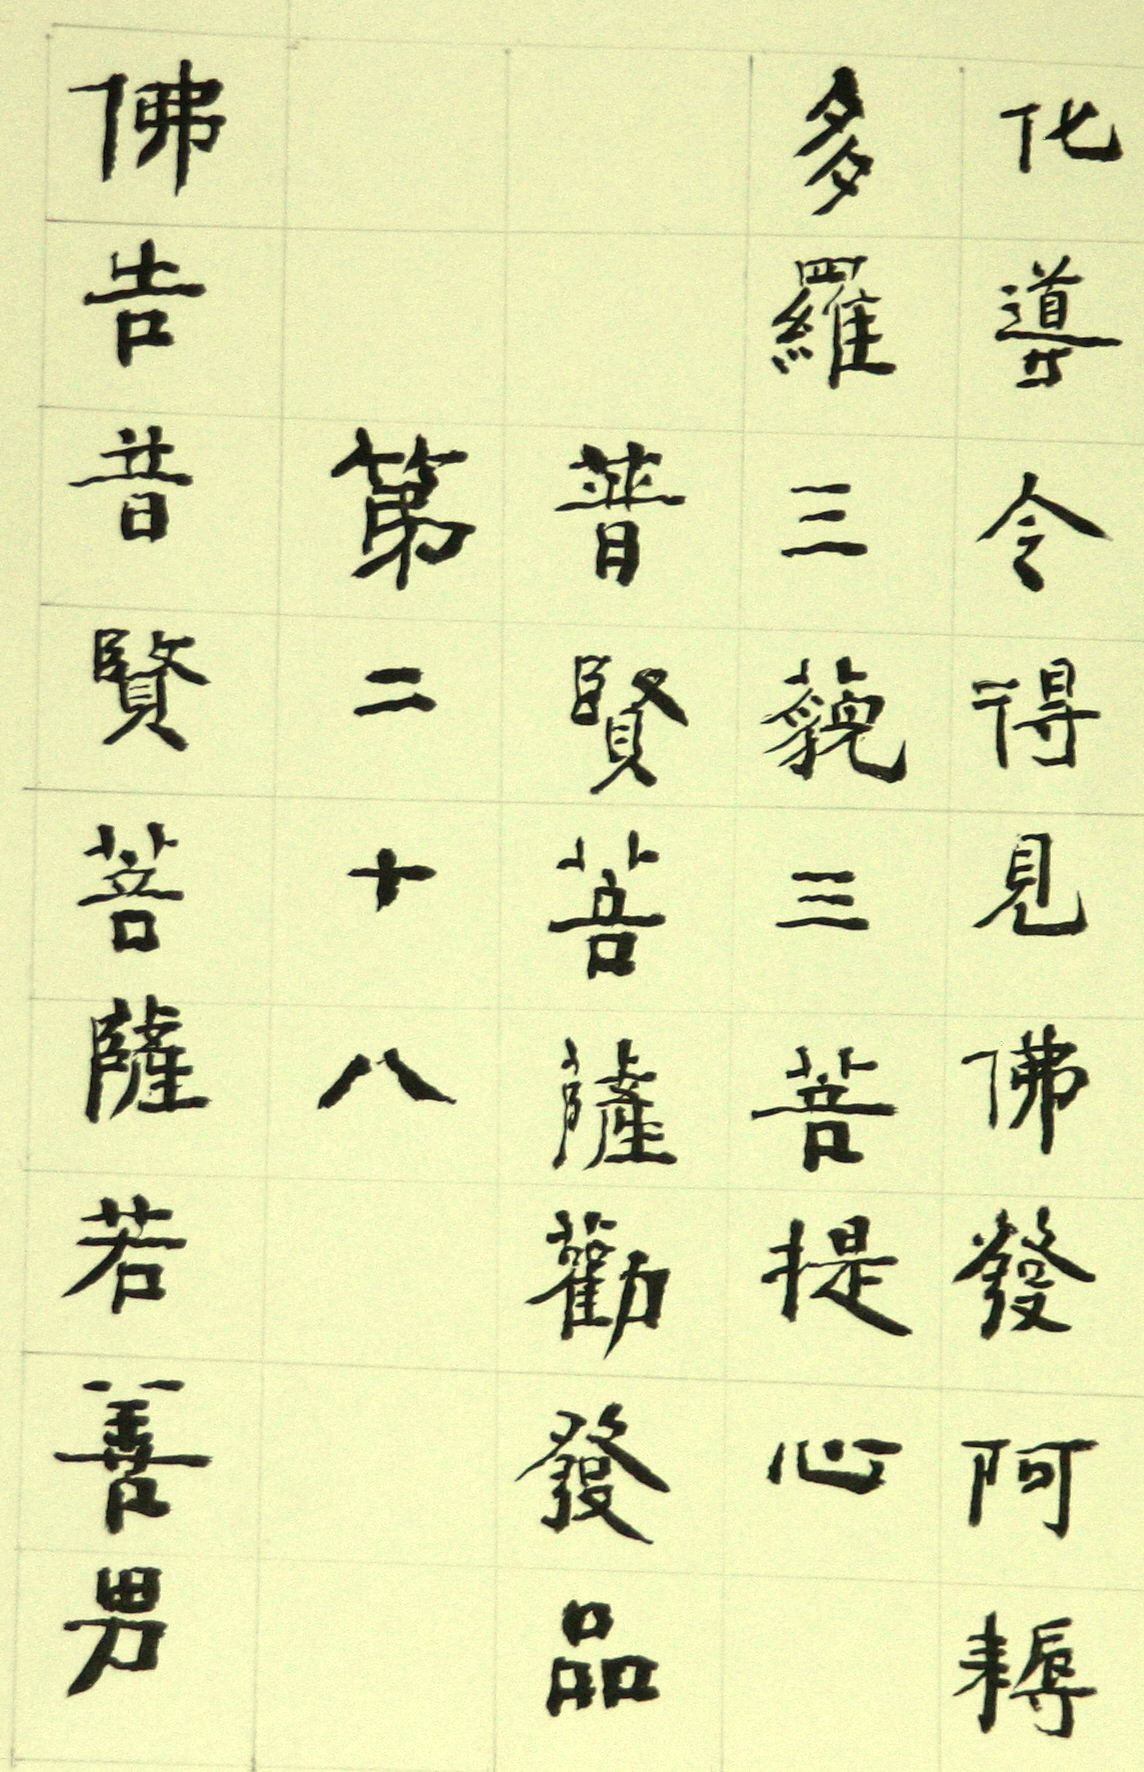 化導令得見佛發阿耨
多羅三藐三菩提心
普賢菩薩勸發品
第二十八
佛告普賢菩薩若善男